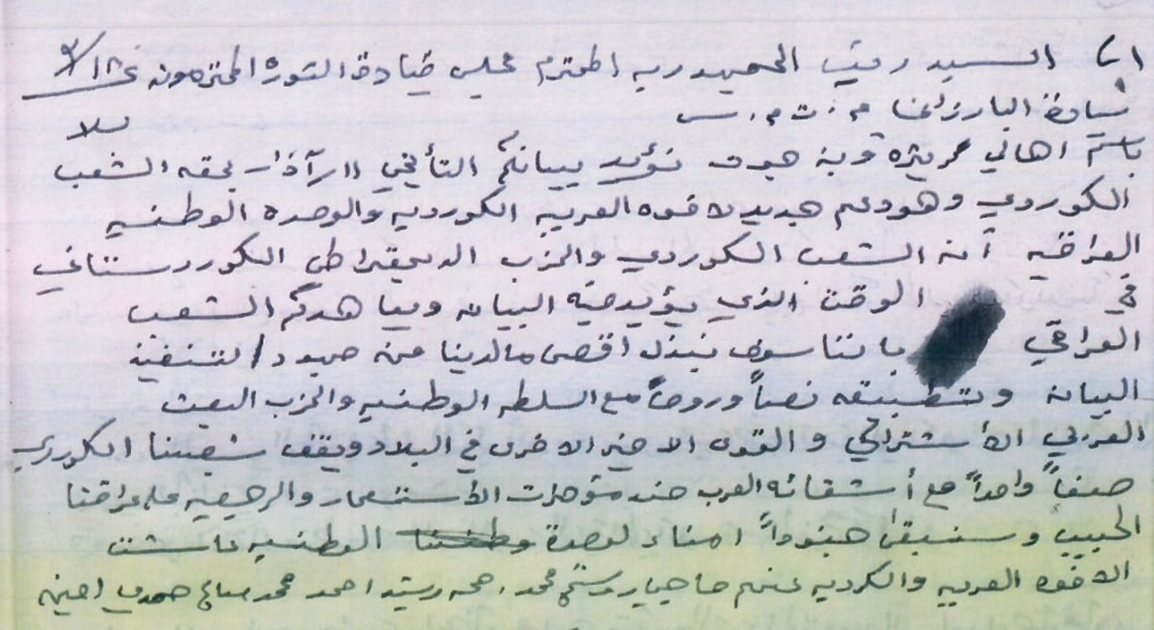 ١) السيد رئيس الجمهوريه المحترم مجلس قيادة الثوره المحترمون
سيادة البارزاني م. ث. م. س
باسم اهالي نؤيد بيانكم التأريخي ١١ آذار بحقه الشعب
الكوردي وهو دعم جديد لاخوه العربيه الكورديه والوحده الوطنيه
العراقيه أن الشعب الكوردي والحزب الديمقراطي الكوردستاني
في الوقت الذي يؤيد فيه البيان ويعاهدكم الشعب
العراقي باننا سوف نبذل اقصى مالدينا من جهود لتنفيذ
البيان وتطبيقه نصاً وروحاً مع السلطه الوطنيه والحزب البعث
العربي الأشتراكي والقوى الاخرى في البلاد ويقف شعبنا الكوردي
صفاً واحداً مع أشقائه العرب ضد مؤمرات الأستعمار والرجعيه على عراقنا
الحبيب وسنبقى جنوداً امناء لوحدة الوطنيه عاشت
الاخوه العربيه والكرديه عنهم رستم محمد رشيد احمد محمد صالح امين